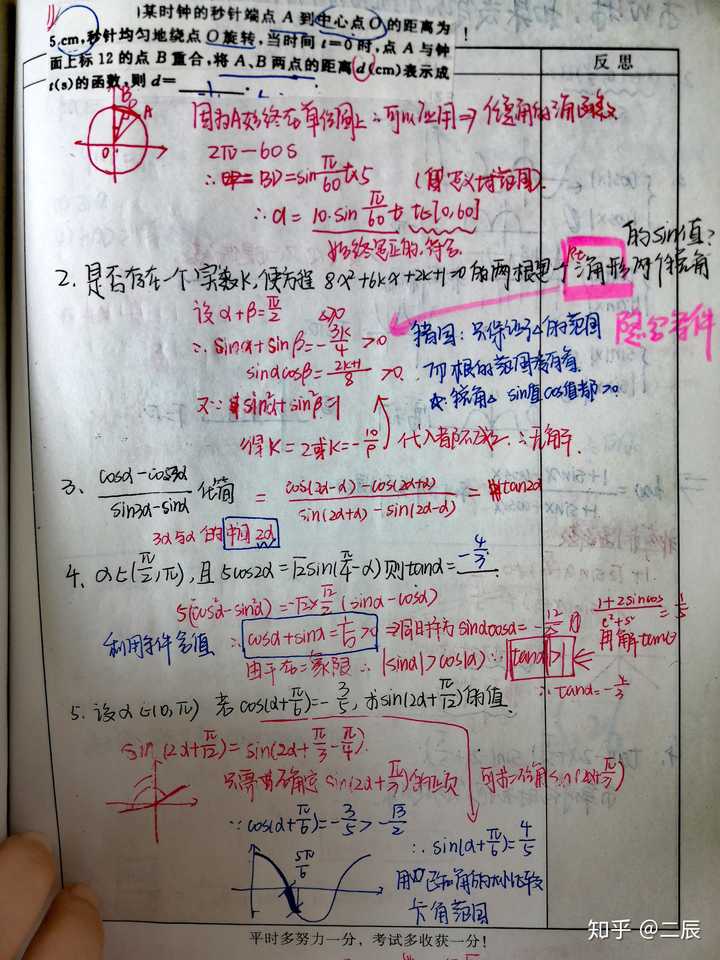 某时钟的秒针端点 A 到中心点 O 的距离为
5 cm,秒针均匀地绕点 O 旋转,当时间 t=0 时,点 A 与钟
面上标 12 的点 B 重合,将 A,B 两点的距离 d(cm)表示成
t(s)的函数,则 d=
反思
B
D
A
O
因为A始终在单位圆上∴可以应用⇒任意角的三角函数
2π-60s
∴BD=sin π/60 t×5
∴d=10·sin π/60 t t∈[0,60]
始终是正的,符合
的sin值?
2、是否存在一个实数K,使方程 8x²+6kx+2k+1=0 的两根是一个Rt三角形两个锐角
隐含条件
设α+β=π/2 △>0
∴sinα+sinβ=-3k/4>0
错因:只保证△的范围
sinαcosβ=2k+1/8>0
而根的范围没有看
又∵sin²α+sin²β=1
锐角 sin值cos值都>0
得K=2或K=-10/9 代入都不成立∴无解.
3、cosα-cos3α/sin3α-sinα 化简 = cos(2α-α)-cos(2α+α)/sin(2α+α)-sin(2α-α) = tan2α
3α与α的中间2α
4、α∈(π/2,π),且5cos2α=√2sin(π/4-α)则tanα=-4/3
5(cos²α-sin²α)=-√2×√2/2(sinα-cosα)
利用条件多值
∴cosα+sinα=1/5>0⇒同时平方sinαcosα=-12/25
1+2sincos/c²+s²=1/5
再解tanθ
由于在二象限∴|sinα|>|cosα|∴|tanα|>1
∴tanα=-4/3
5、设α∈(0,π)若cos(α+π/6)=-3/5,求sin(2α+π/12)的值.
sin(2α+π/12)=sin(2α+π/3-π/4)
只需要确定sin(2α+π/3)的正负 可求二倍角sin(2α+π/3)
∵cos(α+π/6)=-3/5>-√3/2
∴sin(α+π/6)=4/5
5π/6
卡角范围
平时多努力一分,考试多收获一分!
知乎 @二辰